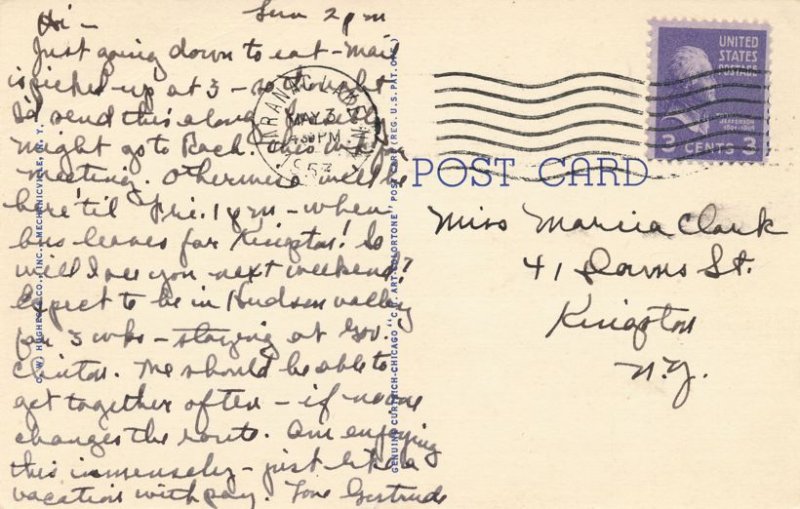 Sun 2 pm
Hi –
Just going down to eat – Mail
is picked up at 3 – so thought
I'd send this along. Possibly
might go to Roch. this wk for
meeting. Otherwise will be
here 'til Fri. 1 pm – when
bus leaves for Kingston! So
will I see you next weekend?
Expect to be in Hudson valley
for 3 wks – staying at Gov.
Clinton. We should be able to
get together often – if no one
changes the route. Am enjoying
this immensely – just like a
vacation with pay. Love Gertrude
C. W. HUGHES & CO., INC., MECHANICVILLE, N. Y.
GENUINE CURTEICH-CHICAGO "C. T. ART-COLORTONE" POST CARD (REG. U.S. PAT. OFF.)
SARANAC LAKE
MAY 3
PM
1953
UNITED
STATES
POSTAGE
JEFFERSON
3 CENTS 3
POST CARD
Miss Marcia Clark
41 Downs St.
Kingston
N.Y.